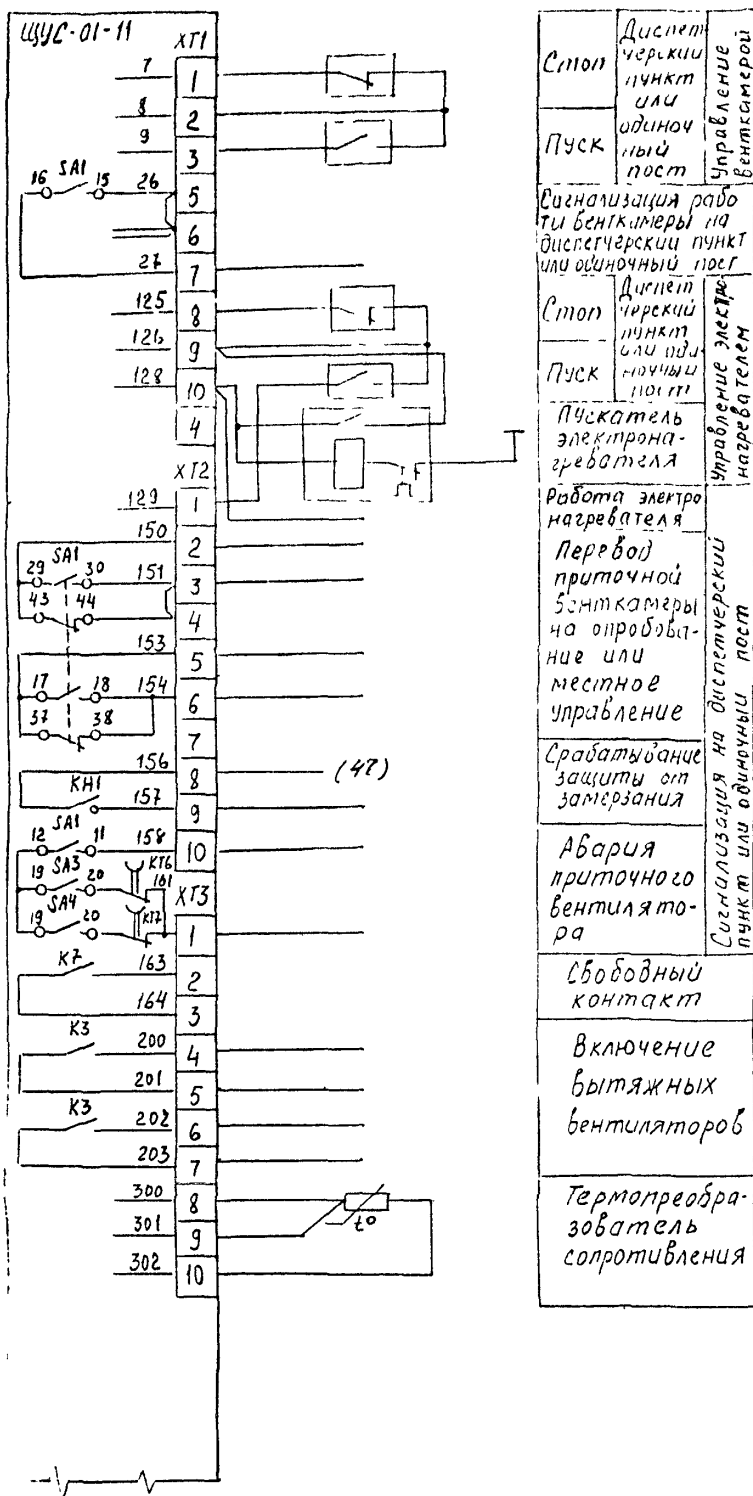 ЩУС-01-11
XT1
7
1
8
2
9
3
16 SA1 15 26
5
6
27
7
125
8
126
9
128
10
4
XT2
129
1
150
2
SA1
29 30 151
3
43 44
4
153
5
17 18 154
6
37 38
7
156
8
(42)
КН1
157
9
SA1
12 11 158
10
SA3
19 20
КТ6
161
XT3
SA4
19 20
КТ7
1
К7
163
2
164
3
К3
200
4
201
5
К3
202
6
203
7
300
8
t°
301
9
302
10
Стоп
Пуск
Диспет
черский
пункт
или
одиноч
ный
пост
Управление
венткамерой
Сигнализация рабо
ты венткамеры на
диспетчерский пункт
или одиночный пост
Стоп
Пуск
Диспет
черский
пункт
или оди-
ночный
пост
Управление электро
нагревателем
Пускатель
электрона-
гревателя
Работа электро
нагревателя
Перевод
приточной
венткамеры
на опробова-
ние или
местное
управление
Срабатывание
защиты от
замерзания
Авария
приточного
вентилято-
ра
Сигнализация на диспетчерский
пункт или одиночный пост
Свободный
контакт
Включение
вытяжных
вентиляторов
Термопреобра-
зователь
сопротивления